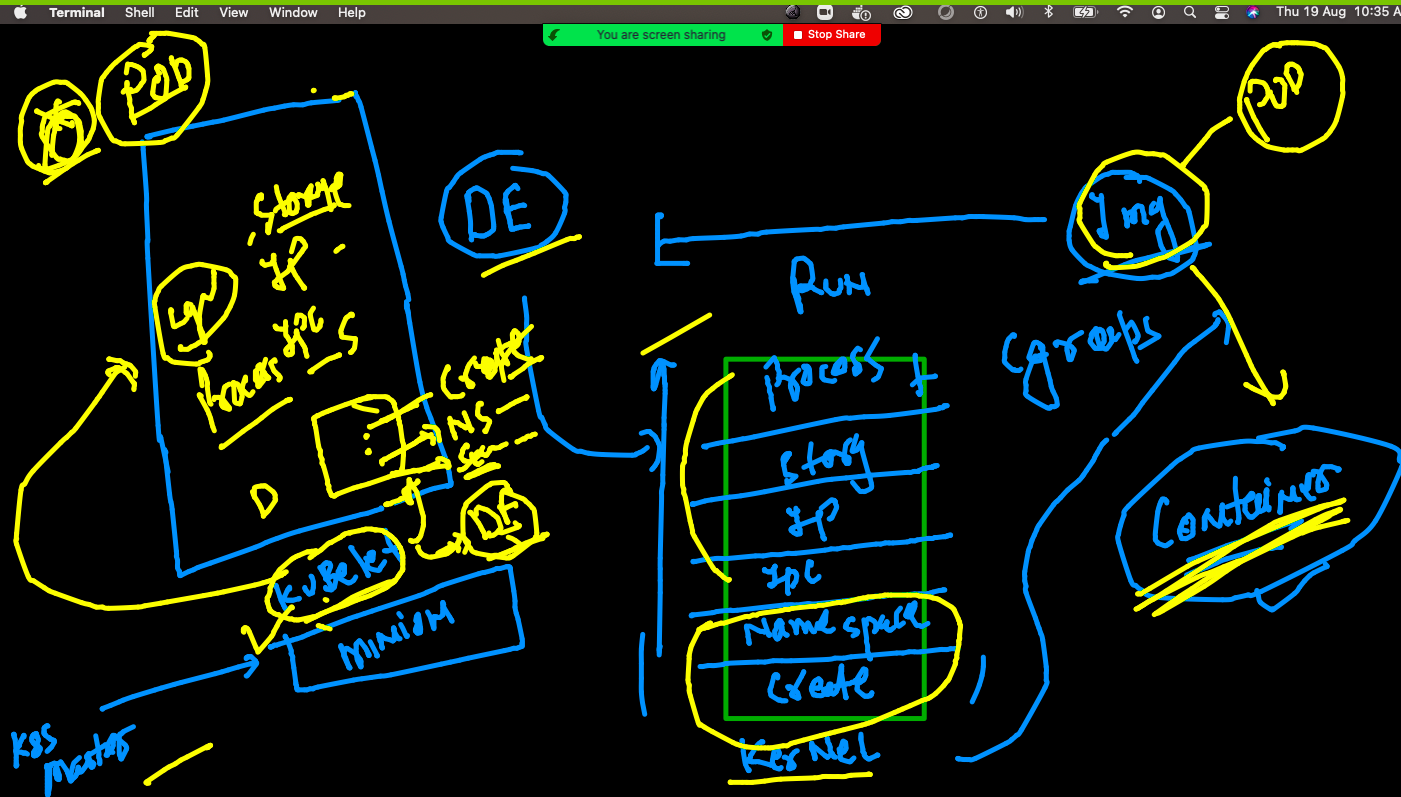 Terminal Shell Edit View Window Help
Thu 19 Aug 10:35 A
You are screen sharing
Stop Share
POD
Storge
IP
IPC
Process
Create
NS
D
DE
kuBelet
MINION
K8S
Master
DE
RUN
Img
Cgroups
Process
Story
IP
IPC
Namespace
Create
KerNeL
Container